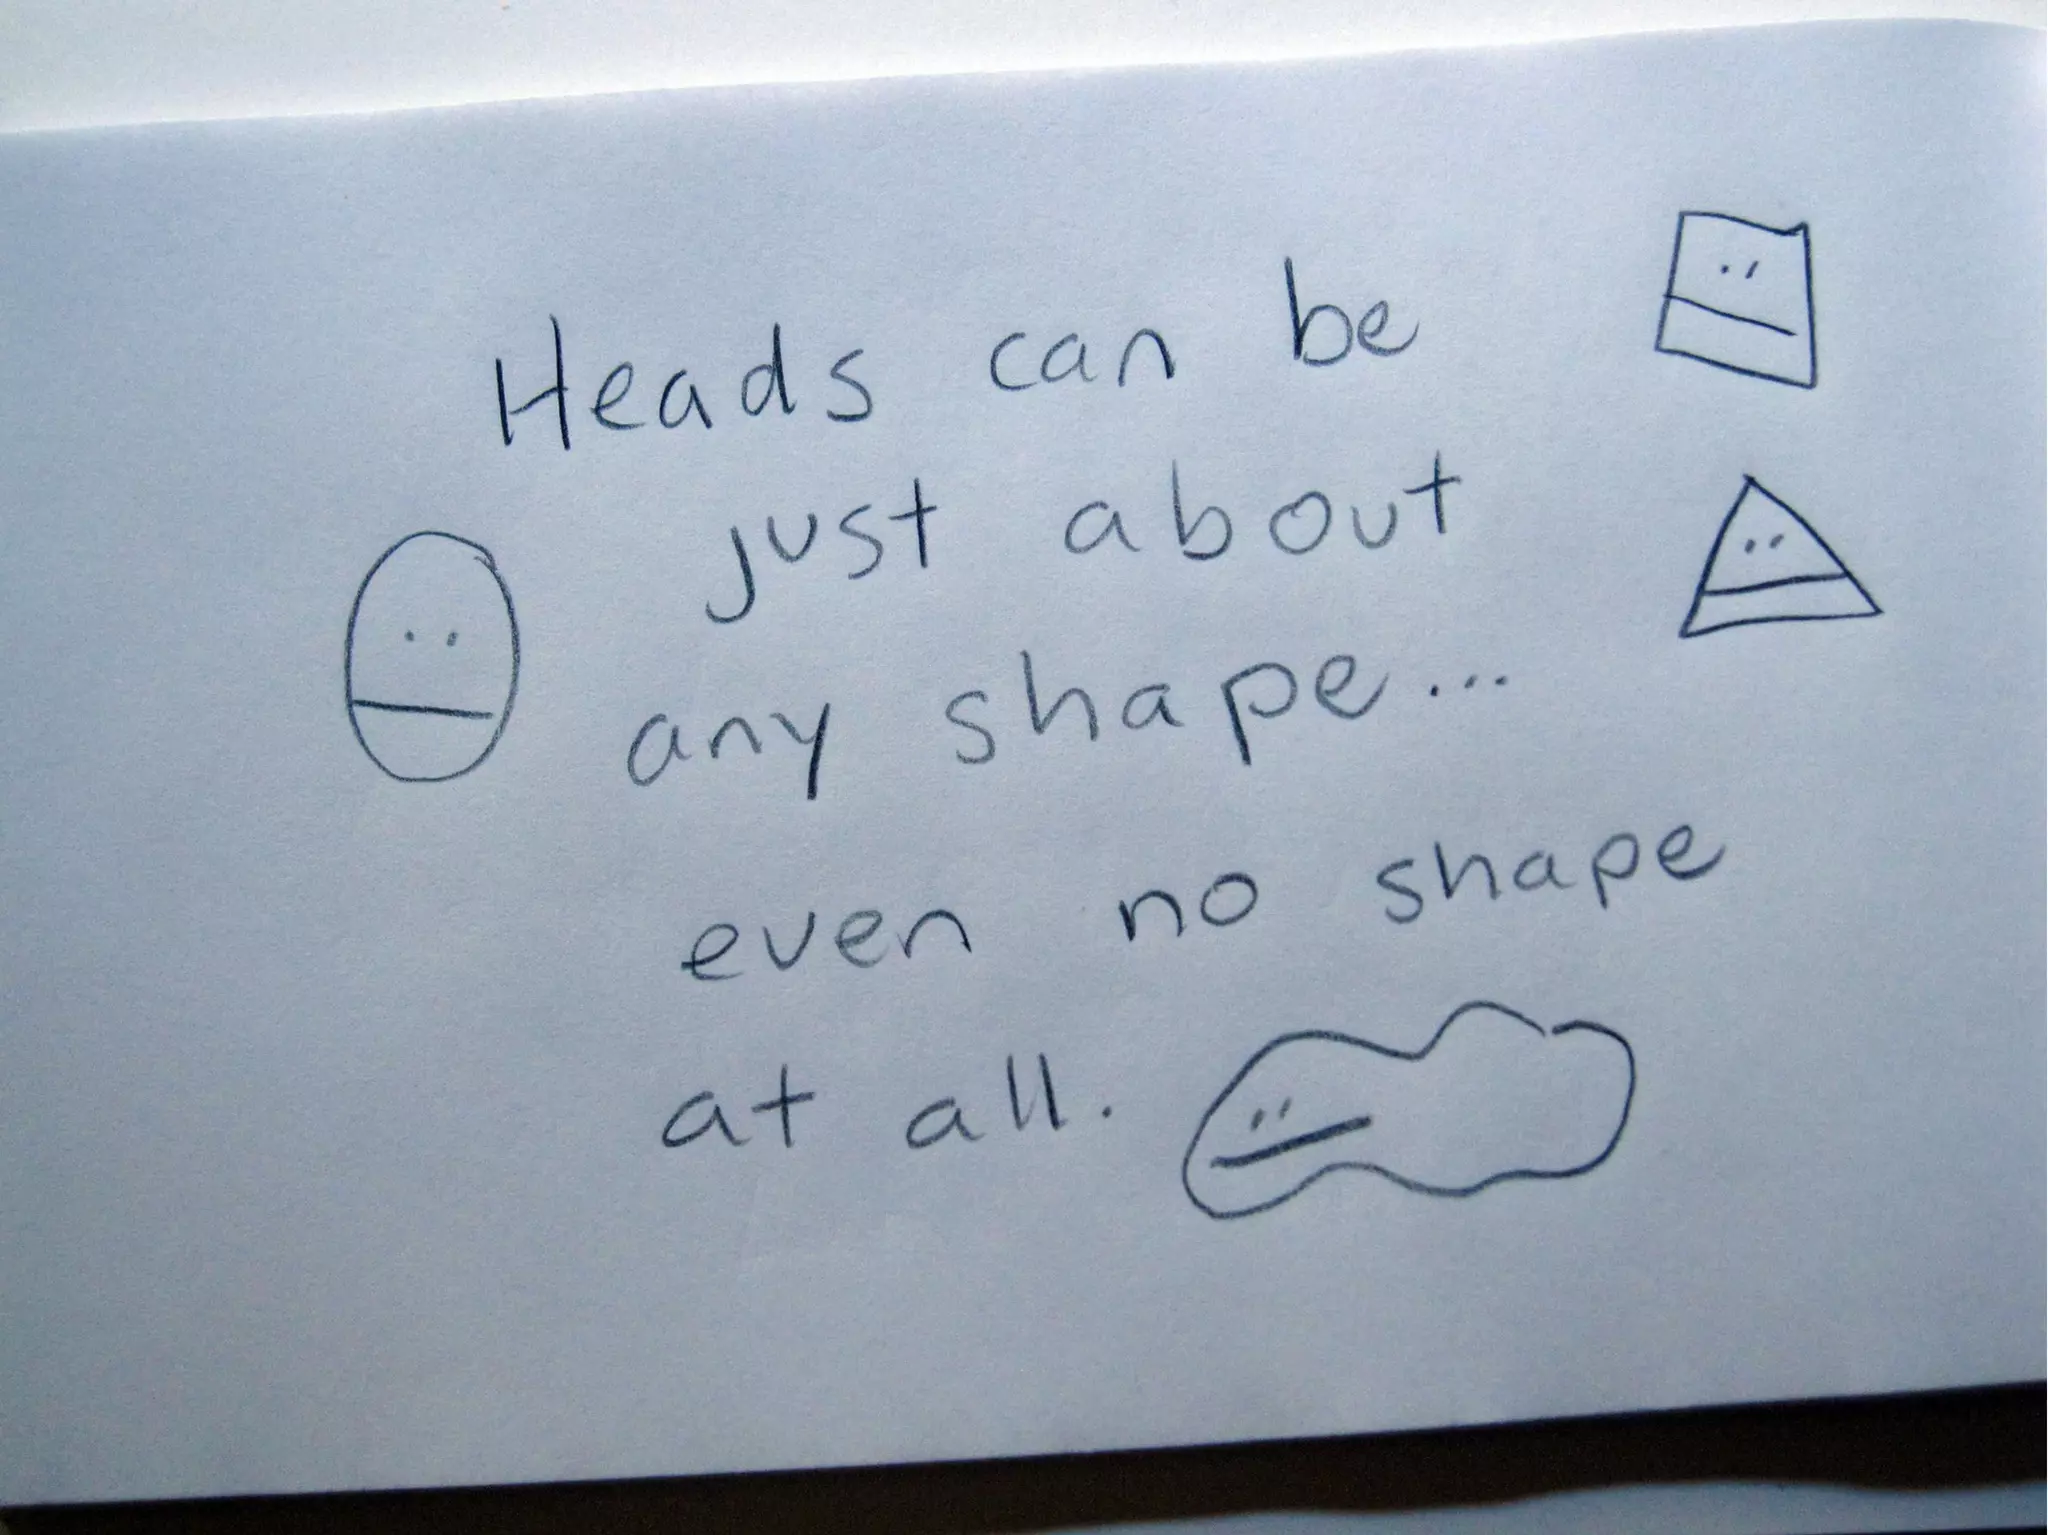 Heads can be
just about
any shape...
even no shape
at all.